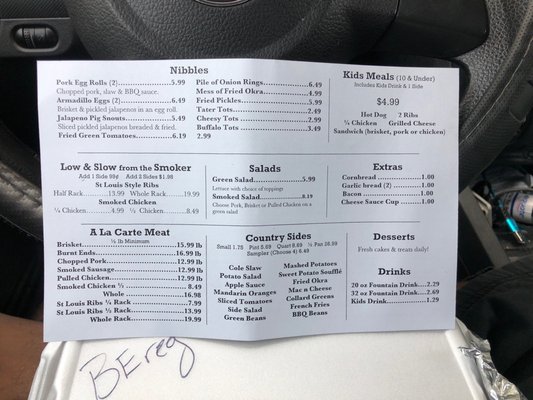 Nibbles
Pork Egg Rolls (2)..................5.99
Chopped pork, slaw & BBQ sauce.
Armadillo Eggs (2)..................6.49
Brisket & pickled jalapenos in an egg roll.
Jalapeno Pig Snouts................5.49
Sliced pickled jalapenos breaded & fried.
Fried Green Tomatoes............6.19
Pile of Onion Rings...............6.49
Mess of Fried Okra................4.99
Fried Pickles..........................5.99
Tater Tots..............................2.49
Cheesy Tots...........................2.99
Buffalo Tots...........................3.49
2.99
Kids Meals (10 & Under)
Includes Kids Drink & 1 Side
$4.99
Hot Dog 2 Ribs
¼ Chicken Grilled Cheese
Sandwich (brisket, pork or chicken)
Low & Slow from the Smoker
Add 1 Side 99¢ Add 2 Sides $1.98
St Louis Style Ribs
Half Rack............13.99 Whole Rack............19.99
Smoked Chicken
¼ Chicken...........4.99 ½ Chicken...........8.49
Salads
Green Salad...........................5.99
Lettuce with choice of toppings
Smoked Salad........................8.19
Choose Pork, Brisket or Pulled Chicken on
a green salad
Extras
Cornbread..............................1.00
Garlic bread (2) .....................1.00
Bacon.....................................1.00
Cheese Sauce Cup.................1.00
A La Carte Meat
½ lb Minimum
Brisket...............................15.99 lb
Burnt Ends.........................16.99 lb
Chopped Pork....................12.99 lb
Smoked Sausage.................12.99 lb
Pulled Chicken...................12.99 lb
Smoked Chicken ½ ............ 8.49
Whole .............. 16.98
St Louis Ribs ¼ Rack .......... 7.99
St Louis Ribs ½ Rack.......... 13.99
Whole Rack.............. 19.99
Country Sides
Small 1.75 Pint 5.69 Quart 9.69 ½ Pan 26.99
Sampler (Choose 4) 6.49
Cole Slaw
Potato Salad
Apple Sauce
Mandarin Oranges
Sliced Tomatoes
Side Salad
Green Beans
Mashed Potatoes
Sweet Potato Soufflé
Fried Okra
Mac n Cheese
Collard Greens
French Fries
BBQ Beans
Desserts
Fresh cakes & treats daily!
Drinks
20 oz Fountain Drink.....2.29
32 oz Fountain Drink.....2.69
Kids Drink......................1.29